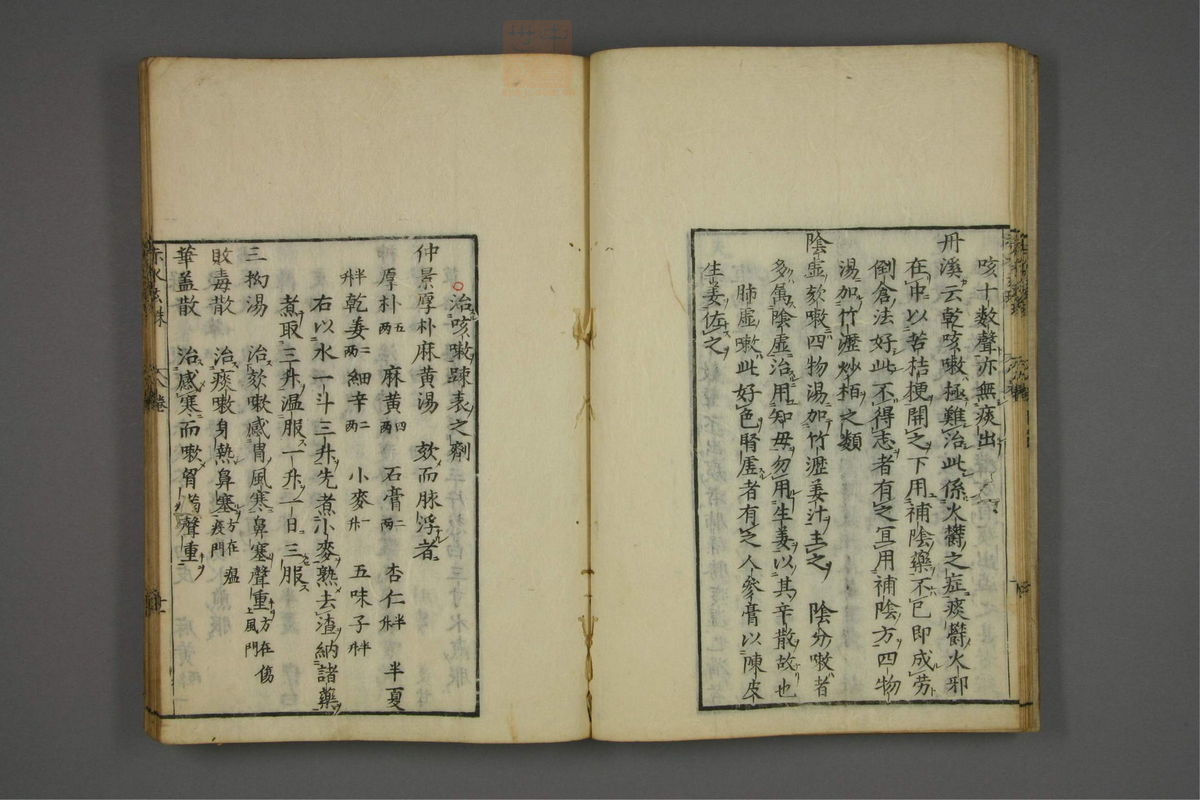 咳十数聲亦無痰出
丹溪云乾咳嗽極難治此係火欝之症痰欝火邪
在中以苦桔梗開之下用補陰藥不已即成勞
倒倉法好此不得志者有之宜用補陰方四物
湯加竹瀝炒栢之類
陰虚欬嗽四物湯加竹瀝姜汁主之 陰分嗽者
多属陰虚治用知母勿用生姜以其辛散故也
肺虚嗽此好色腎虚者有之人參膏以陳皮
生姜佐之
治咳嗽踈表之劑
仲景厚朴麻黄湯 欬而脉浮者
厚朴五両 麻黄四両 石膏二両 杏仁半升 半夏
半升 乾姜二両 細辛二両 小麥一升 五味子半升
右以水一斗三升先煮小麥熟去渣納諸藥
煮取三升温服一升一日三服
三拗湯 治欬嗽感冒風寒鼻塞聲重方在傷風門
敗毒散 治痰嗽身熱鼻塞方在瘟疫門
華盖散 治感寒而嗽胷滿聲重
赤水玄珠 八卷